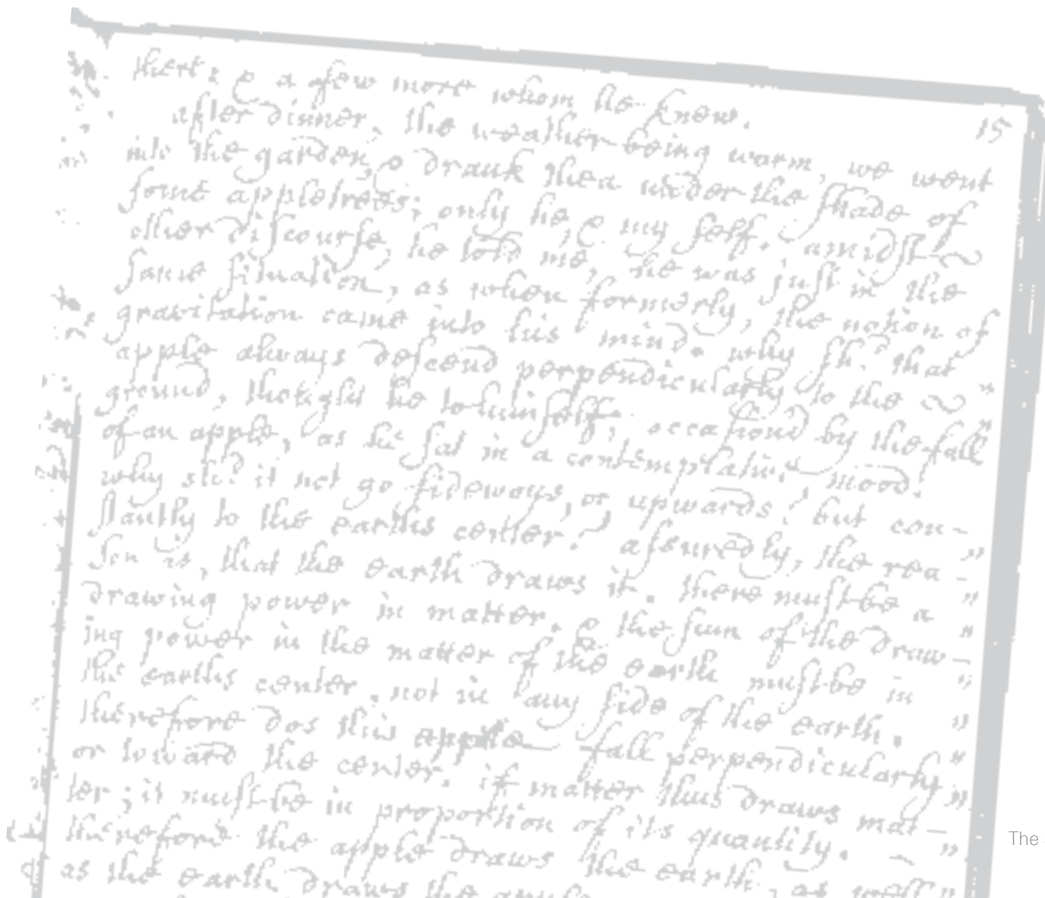 there; & a few more whom he knew.
15
after dinner, the weather being warm, we went
into the garden, & drank thea under the shade of
some appletrees; only he, & my self. amidst
other discourse, he told me, he was just in the
same situation, as when formerly, the notion of
gravitation came into his mind. why sh.d that
apple always descend perpendicularly to the
ground, thought he to himself; occasion'd by the fall
of an apple, as he sat in a contemplative mood.
why sh.d it not go sideways, or upwards? but con-
stantly to the earths center? assuredly, the rea-
son is, that the earth draws it. there must be a
drawing power in matter. & the sum of the draw-
ing power in the matter of the earth must be in
the earths center, not in any side of the earth.
therefore dos this apple fall perpendicularly
or toward the center. if matter thus draws mat-
ter; it must be in proportion of its quantity.
therefore the apple draws the earth, as well
as the earth draws the apple
The